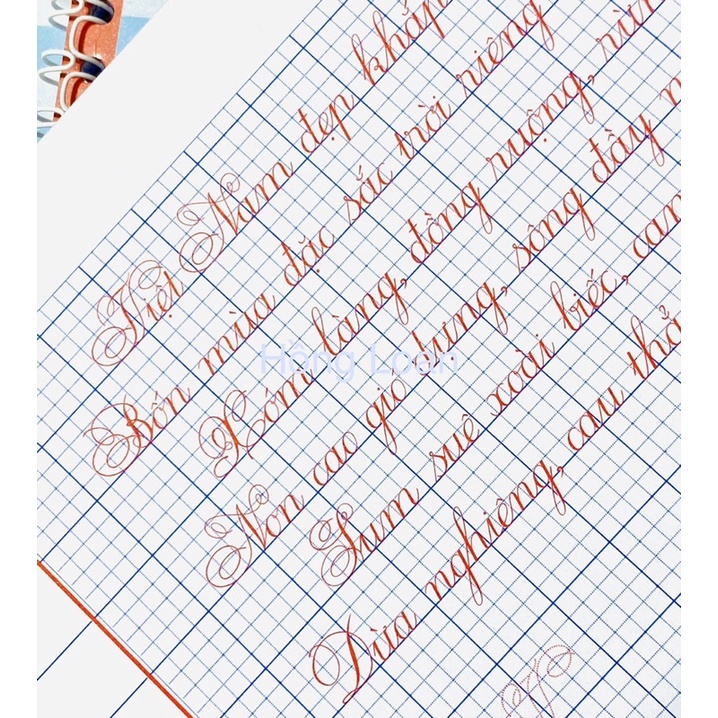 Việt Nam đẹp khắp
Bốn mùa đặc sắc trời riêng
Xóm làng, đồng ruộng, rừn
Non cao gió dựng, sông đầy n
Sum suê xoài biếc, cam
Dừa nghiêng, cau thẳ
Hồng Loan